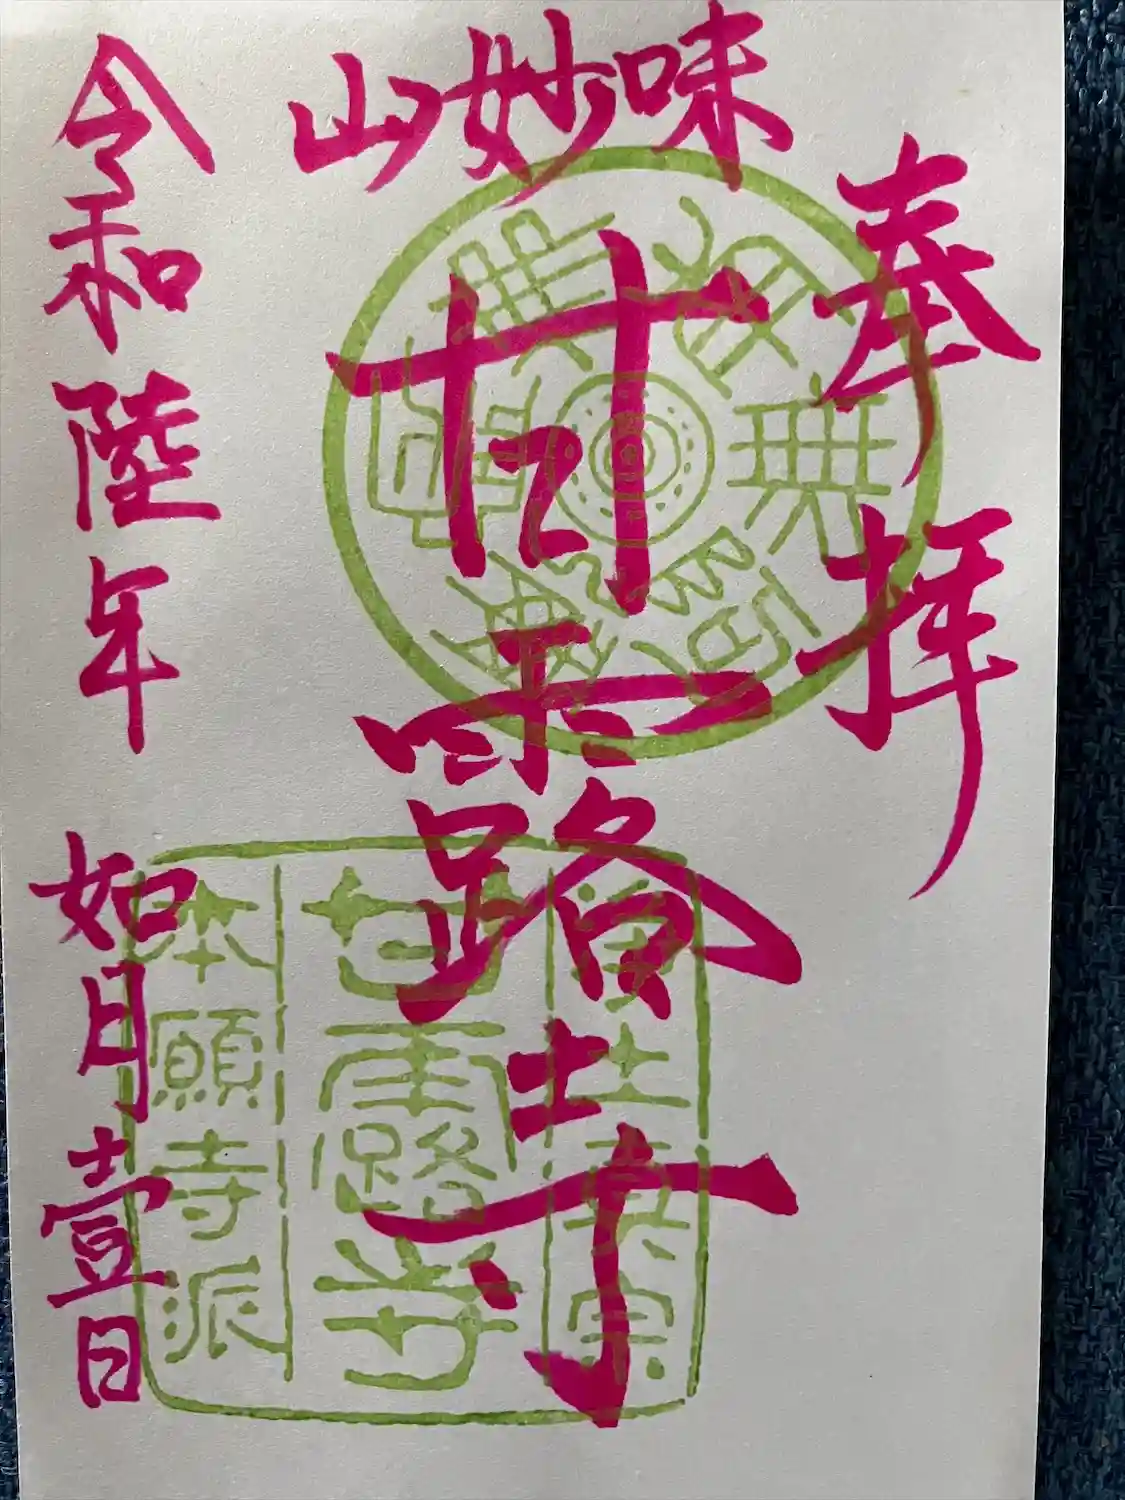 奉拝
味妙山
甘露寺
令和陸年 如月壹日
浄土真宗
甘露寺
本願寺派